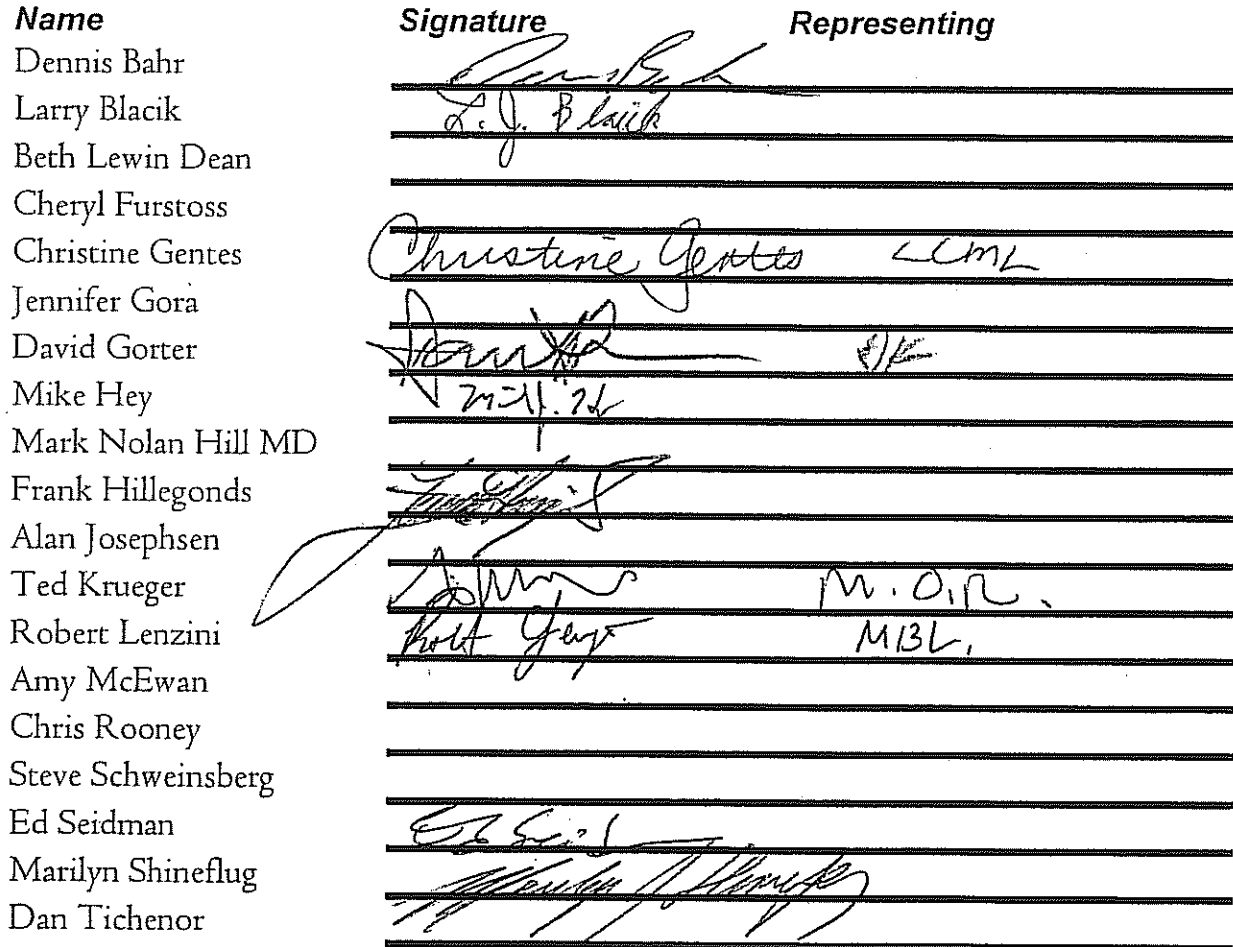 Name Signature Representing
Dennis Bahr
Larry Blacik L. J. Blacik
Beth Lewin Dean
Cheryl Furstoss
Christine Gentes Christine Gentes LCML
Jennifer Gora
David Gorter
Mike Hey
Mark Nolan Hill MD
Frank Hillegonds
Alan Josephsen
Ted Krueger M.O.R.
Robert Lenzini MBL.
Amy McEwan
Chris Rooney
Steve Schweinsberg
Ed Seidman
Marilyn Shineflug
Dan Tichenor